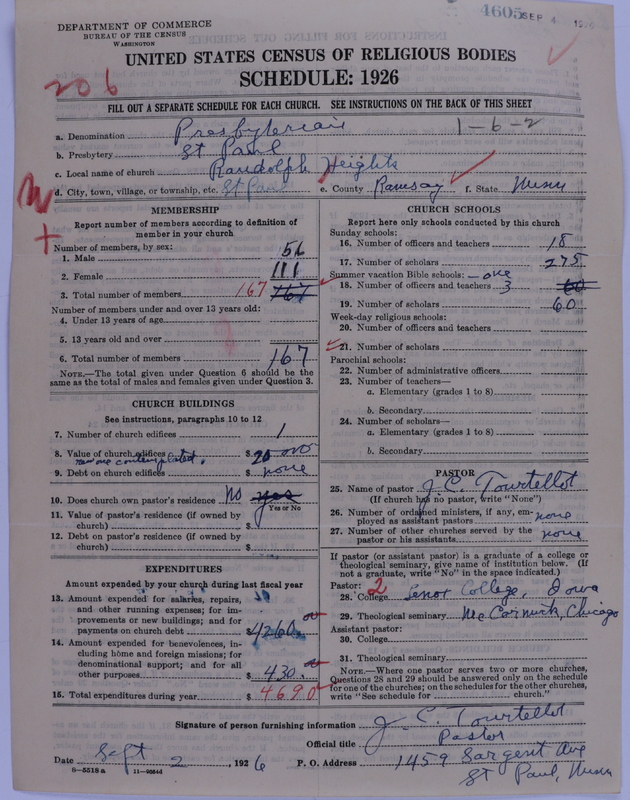 4605 SEP 4 1926
DEPARTMENT OF COMMERCE
BUREAU OF THE CENSUS
WASHINGTON
UNITED STATES CENSUS OF RELIGIOUS BODIES
SCHEDULE: 1926
206
FILL OUT A SEPARATE SCHEDULE FOR EACH CHURCH. SEE INSTRUCTIONS ON THE BACK OF THIS SHEET
a. Denomination Presbyterian 1-6-2
b. Presbytery St Paul
c. Local name of church Randolph Heights
d. City, town, village, or township, etc. St Paul e. County Ramsay f. State Minn
MEMBERSHIP
Report number of members according to definition of
member in your church
Number of members, by sex:
1. Male 56
2. Female 111
3. Total number of members 167 167
Number of members under and over 13 years old:
4. Under 13 years of age
5. 13 years old and over
6. Total number of members 167
NOTE.—The total given under Question 6 should be the
same as the total of males and females given under Question 3.
CHURCH BUILDINGS
See instructions, paragraphs 10 to 12
7. Number of church edifices 1
8. Value of church edifices $ 20 000
new one contemplated.
9. Debt on church edifices $ none
10. Does church own pastor's residence No yes
Yes or No
11. Value of pastor's residence (if owned by
church) $
12. Debt on pastor's residence (if owned by
church) $
EXPENDITURES
Amount expended by your church during last fiscal year
13. Amount expended for salaries, repairs,
and other running expenses; for im-
provements or new buildings; and for
payments on church debt $ 4260.00
14. Amount expended for benevolences, in-
cluding home and foreign missions; for
denominational support; and for all
other purposes $ 430.00
15. Total expenditures during year $ 4690
CHURCH SCHOOLS
Report here only schools conducted by this church
Sunday schools:
16. Number of officers and teachers 18
17. Number of scholars 275
Summer vacation Bible schools: — one
18. Number of officers and teachers 3 60
19. Number of scholars 60
Week-day religious schools:
20. Number of officers and teachers
21. Number of scholars
Parochial schools:
22. Number of administrative officers
23. Number of teachers—
a. Elementary (grades 1 to 8)
b. Secondary
24. Number of scholars—
a. Elementary (grades 1 to 8)
b. Secondary
PASTOR
25. Name of pastor J. C. Tourtellot
(If church has no pastor, write "None")
26. Number of ordained ministers, if any, em-
ployed as assistant pastors none
27. Number of other churches served by the
pastor or his assistants none
If pastor (or assistant pastor) is a graduate of a college or
theological seminary, give name of institution below. (If
not a graduate, write "No" in the space indicated.)
Pastor: 2
28. College Lenox College, Iowa
29. Theological seminary McCormick, Chicago
Assistant pastor:
30. College
31. Theological seminary
NOTE.—Where one pastor serves two or more churches,
Questions 28 and 29 should be answered only on the schedule
for one of the churches; on the schedules for the other churches,
write "See schedule for church."
Signature of person furnishing information J. C. Tourtellot
Official title Pastor
Date Sept 2, 1926 P. O. Address 1459 Sargent Ave
St Paul, Minn
8—5518 a